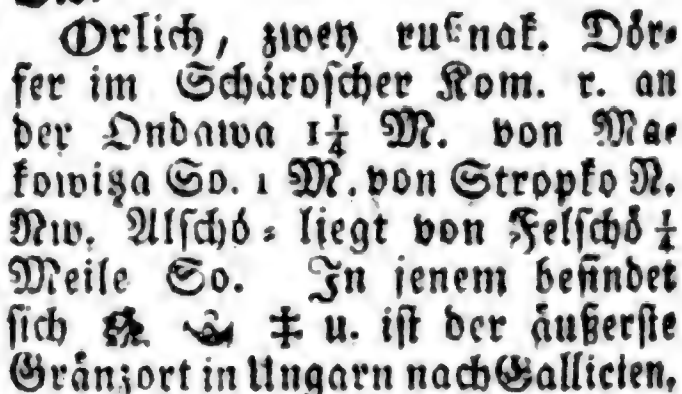 Orlich, zwey rußnak. Dör-
fer im Schároscher Kom. r. an
der Ondawa 1¼ M. von Ma-
kowitza So. 1 M. von Stropko N.
Nw. Alschö- liegt von Felschö ¼
Meile So. In jenem befindet
sich ‡ u. ist der äußerste
Gränzort in Ungarn nach Gallicien,